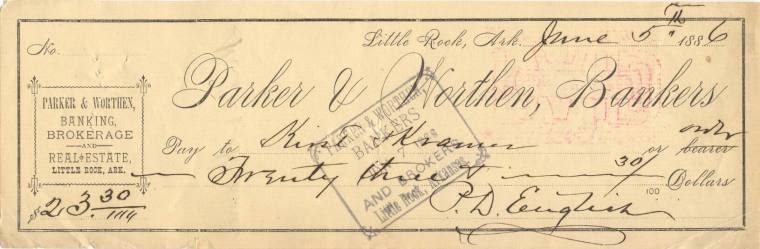 No.
Little Rock, Ark. June 5th 1886
Parker & Worthen, Bankers
PARKER & WORTHEN,
BANKING,
BROKERAGE
AND
REAL ESTATE,
LITTLE ROCK, ARK.
Pay to Kramer or bearer order
Twenty three & 30/100 Dollars
$23.30
P. D. English
PARKER & WORTHEN,
BANKERS
7
AND BROKERS
Little Rock, Arkansas.